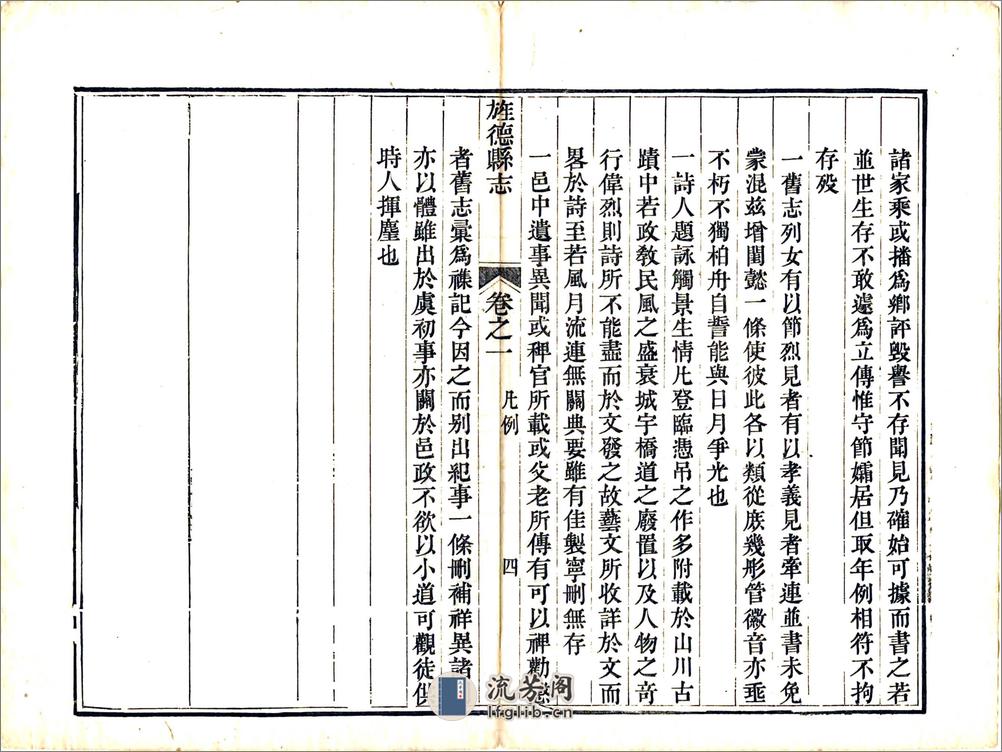 諸家乘或播爲鄉評毀譽不存聞見乃確始可據而書之若
並世生存不敢遽爲立傳惟守節孀居但取年例相符不拘
存殁
一舊志列女有以節烈見者有以孝義見者牽連並書未免
蒙混茲增閨懿一條使彼此各以類從庶幾彤管徽音亦垂
不朽不獨柏舟自誓能與日月爭光也
一詩人題詠觸景生情凡登臨憑吊之作多附載於山川古
蹟中若政敎民風之盛衰城宇橋道之廢置以及人物之奇
行偉烈則詩所不能盡而於文發之故藝文所收詳於文而
畧於詩至若風月流連無關典要雖有佳製寧刪無存
一邑中遺事異聞或稗官所載或父老所傳有可以裨勸懲
旌德縣志
卷之一
凡例
四
者舊志彙爲襍記今因之而别出紀事一條刪補祥異諸
亦以體雖出於虞初事亦關於邑政不欲以小道可觀徒供
時人揮麈也
流芳阁
lfglib.cn